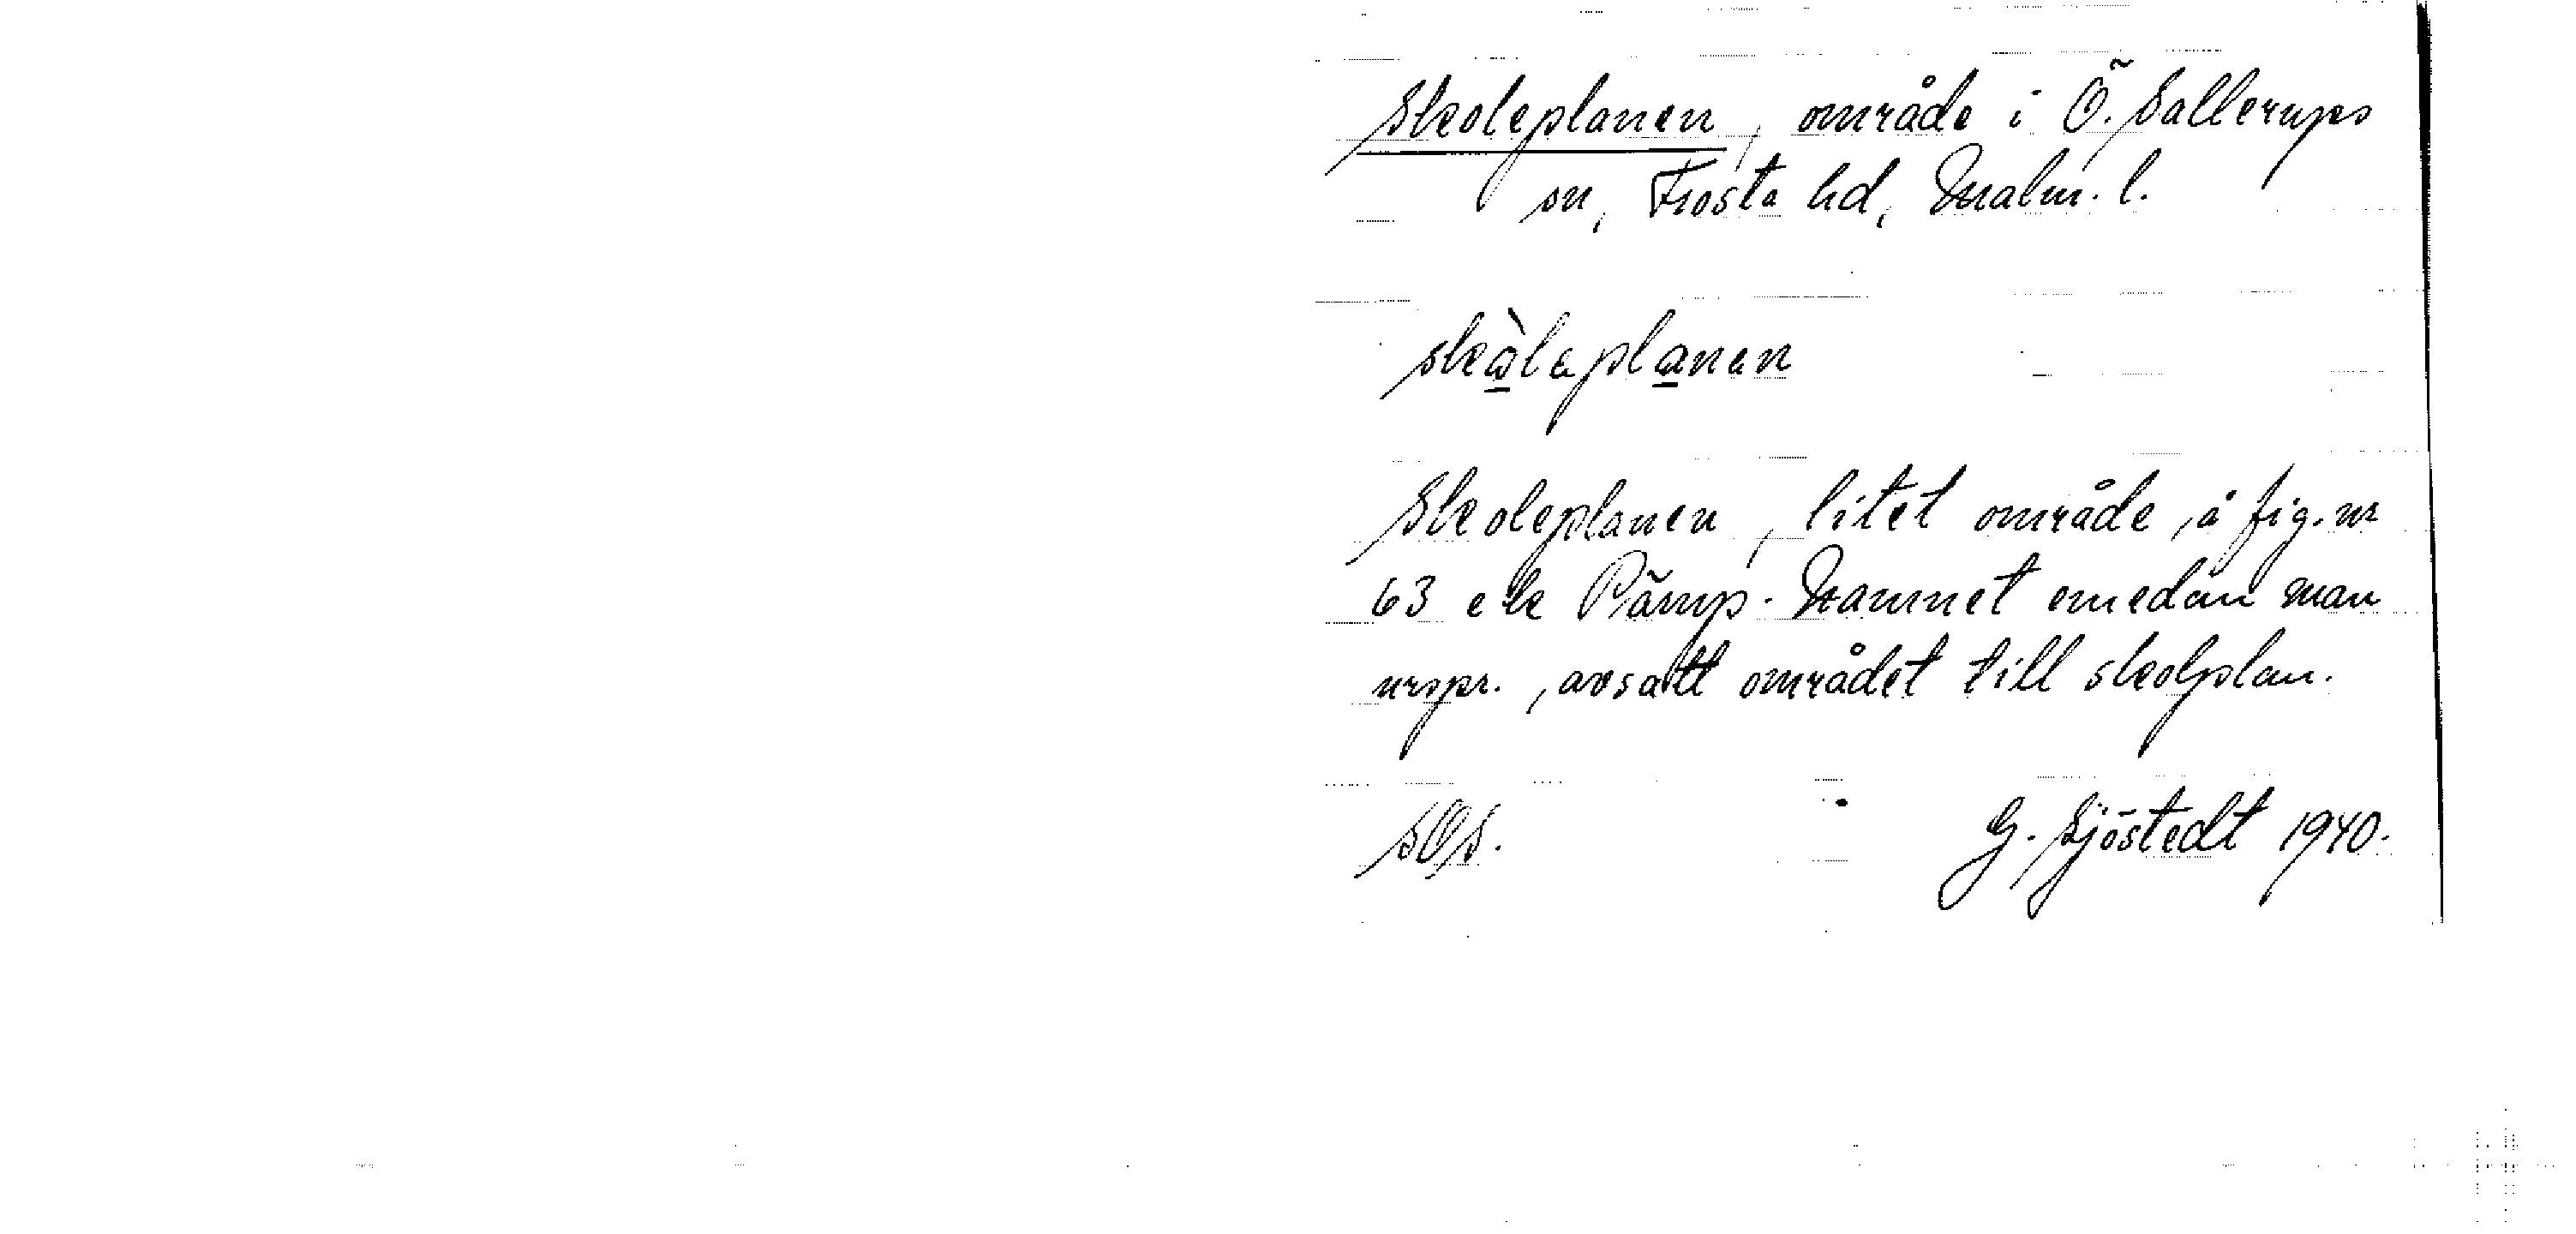 Skoleplanen, område i Ö. Sallerups
sn, Frosta hd, Malm. l.
skàleplanen
Skoleplanen, litet område å fig. nr
63 ek Pärup. Namnet emedan man
urspr. avsatt området till skolplan.
SOS. G. Sjöstedt 1940.